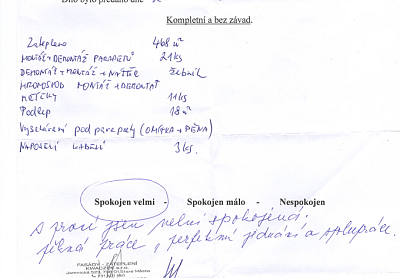 Dílo bylo předáno dne
Kompletní a bez závad.
Zatepleno 468 m²
MONTÁŽ + DEMONTÁŽ PARAPETŮ 21 ks
DEMONTÁŽ + MONTÁŽ + NÁTĚR žebřík
HROMOSVOD MONTÁŽ + DEMONTÁŽ
11 ks
18 m²
pod parapety (OMÍTKA + PĚNA)
NAPOJENÍ KABELŮ 3 ks.
Spokojen velmi - Spokojen málo - Nespokojen
s prací jsem velmi spokojená.
pěkná práce, perfektní jednání a spolupráce.
FASÁDY - ZATEPLENÍ